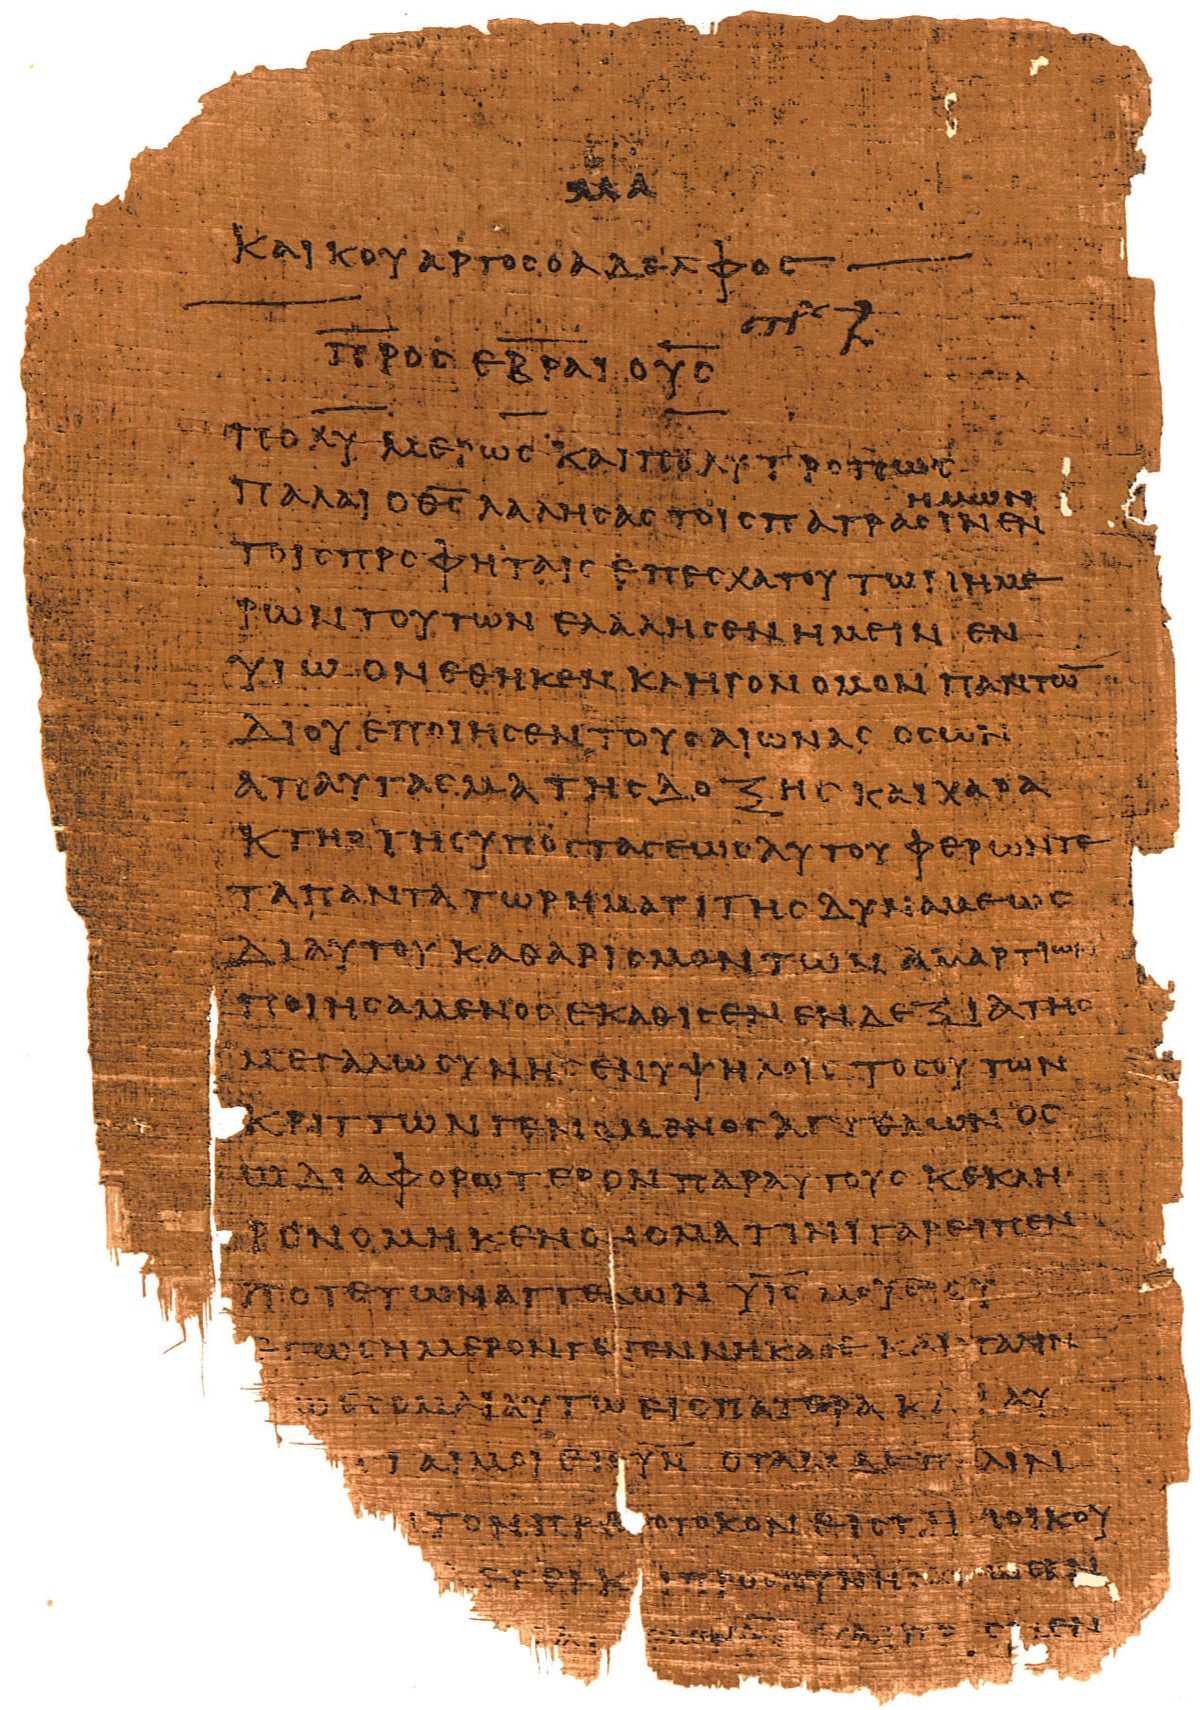 ΜΑ
ΚΑΙ ΚΟΥΑΡΤΟΣ Ο ΑΔΕΛΦΟΣ
ΠΡΟΣ ΕΒΡΑΙΟΥΣ
ΠΟΛΥΜΕΡΩΣ ΚΑΙ ΠΟΛΥΤΡΟΠΩΣ
ΗΜΩΝ
ΠΑΛΑΙ Ο Θ̅Σ̅ ΛΑΛΗΣΑΣ ΤΟΙΣ ΠΑΤΡΑΣΙΝ ΕΝ
ΤΟΙΣ ΠΡΟΦΗΤΑΙΣ ΕΠ ΕΣΧΑΤΟΥ ΤΩΝ ΗΜΕ
ΡΩΝ ΤΟΥΤΩΝ ΕΛΑΛΗΣΕΝ ΗΜΕΙΝ ΕΝ
ΥΙΩ ΟΝ ΕΘΗΚΕΝ ΚΛΗΡΟΝΟΜΟΝ ΠΑΝΤΩ̅
ΔΙ ΟΥ ΕΠΟΙΗΣΕΝ ΤΟΥΣ ΑΙΩΝΑΣ ΟΣ ΩΝ
ΑΠΑΥΓΑΣΜΑ ΤΗΣ ΔΟΞΗΣ ΚΑΙ ΧΑΡΑ
ΚΤΗΡ ΤΗΣ ΥΠΟΣΤΑΣΕΩΣ ΑΥΤΟΥ ΦΕΡΩΝ ΤΕ
ΤΑ ΠΑΝΤΑ ΤΩ ΡΗΜΑΤΙ ΤΗΣ ΔΥΝΑΜΕΩΣ
ΔΙ ΑΥΤΟΥ ΚΑΘΑΡΙΣΜΟΝ ΤΩΝ ΑΜΑΡΤΙΩΝ
ΠΟΙΗΣΑΜΕΝΟΣ ΕΚΑΘΙΣΕΝ ΕΝ ΔΕΞΙΑ ΤΗΣ
ΜΕΓΑΛΩΣΥΝΗΣ ΕΝ ΥΨΗΛΟΙΣ ΤΟΣΟΥΤΩΝ
ΚΡΙΤΤΩΝ ΓΕΝΟΜΕΝΟΣ ΑΓΓΕΛΩΝ ΟΣ
Ω ΔΙΑΦΟΡΩΤΕΡΟΝ ΠΑΡ ΑΥΤΟΥΣ ΚΕΚΛΗ
ΡΟΝΟΜΗΚΕΝ ΟΝΟΜΑ ΤΙΝΙ ΓΑΡ ΕΙΠΕΝ
ΠΟΤΕ ΤΩΝ ΑΓΓΕΛΩΝ Υ̅Ι̅Σ̅ ΜΟΥ ΕΙ ΣΥ
ΕΓΩ ΣΗΜΕΡΟΝ ΓΕΓΕΝΝΗΚΑ ΣΕ ΚΑΙ ΠΑΛΙΝ
ΕΣΟΜΑΙ ΑΥΤΩ ΕΙΣ ΠΑΤΕΡΑ ΚΑΙ ΑΥ
ΤΑΙ ΜΟΙ ΕΙΣ Υ̅Ν̅ ΟΤΑΝ ΔΕ ΠΑΛΙΝ
ΤΟΝ ΠΡΩΤΟΤΟΚΟΝ ΕΙΣ ΤΗΝ ΟΙΚΟΥ